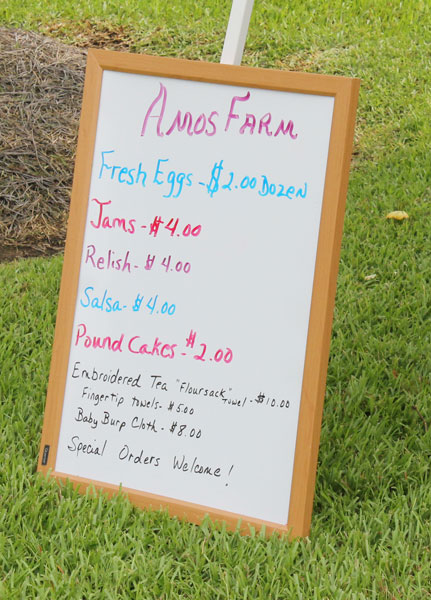 Amos Farm
Fresh Eggs - $2.00 Dozen
Jams - $4.00
Relish - $4.00
Salsa - $4.00
Pound Cakes - $2.00
Embroidered Tea "Floursack" Towel - $10.00
Fingertip towels - $5.00
Baby Burp Cloth - $8.00
Special Orders Welcome!